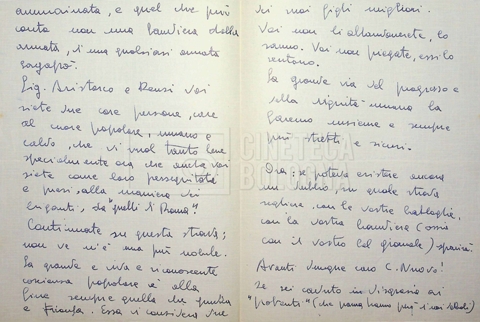 ammainata, e quel che più
conta non una bandiera della
armata, di una qualsiasi armata
sagapò.
Sig. Aristarco e Renzi voi
siete due care persone, care
al cuore popolare, umano e
caldo, che vi vuol tanto bene
specialmente ora che anche voi
siete come loro perseguitati
e presi, alla maniera dei
briganti, da "quelli di Roma".
Continuate su questa strada;
non ve n'è una più nobile.
La grande e viva e riconoscente
coscienza popolare è alla
fine sempre quella che giudica
e trionfa. Essa vi considera due
dei suoi figli migliori.
Voi non li abbandonate, lo
sanno. Voi non piegate, essi lo
sentono.
La grande via del progresso e
della dignità umana la
faremo insieme e sempre
più stretti e sicuri.
Ora, se poteva esistere ancora
un dubbio, su quale strada
con le vostre battaglie,
con la vostra bandiera (ossia
con il vostro bel giornale)
Avanti dunque caro C. Nuovo!
Se sei caduto in disgrazia ai
"potenti" (che paura hanno però i tuoi
CINETECA
BOLOGNA